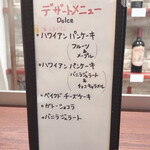 デザートメニュー
Dolce
・ハワイアンパンケーキ
フルーツ
&
メープル
・ハワイアンパンケーキ
バニラジェラート
&
チョコキャラメル
・ベイクドチーズケーキ
・ガトーショコラ
・バニラジェラート